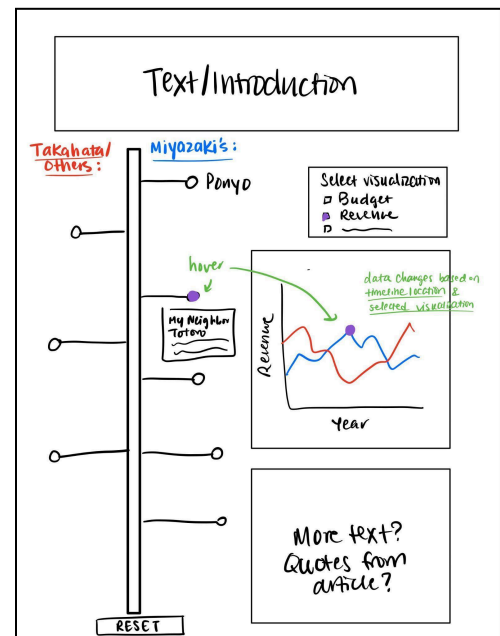 Text/Introduction
Takahata/
Others:
Miyazaki's:
Ponyo
Select visualization
Budget
Revenue
hover
data changes based on
timeline location &
selected visualization
My Neighbor
Totoro
Revenue
Year
More text?
Quotes from
article?
RESET